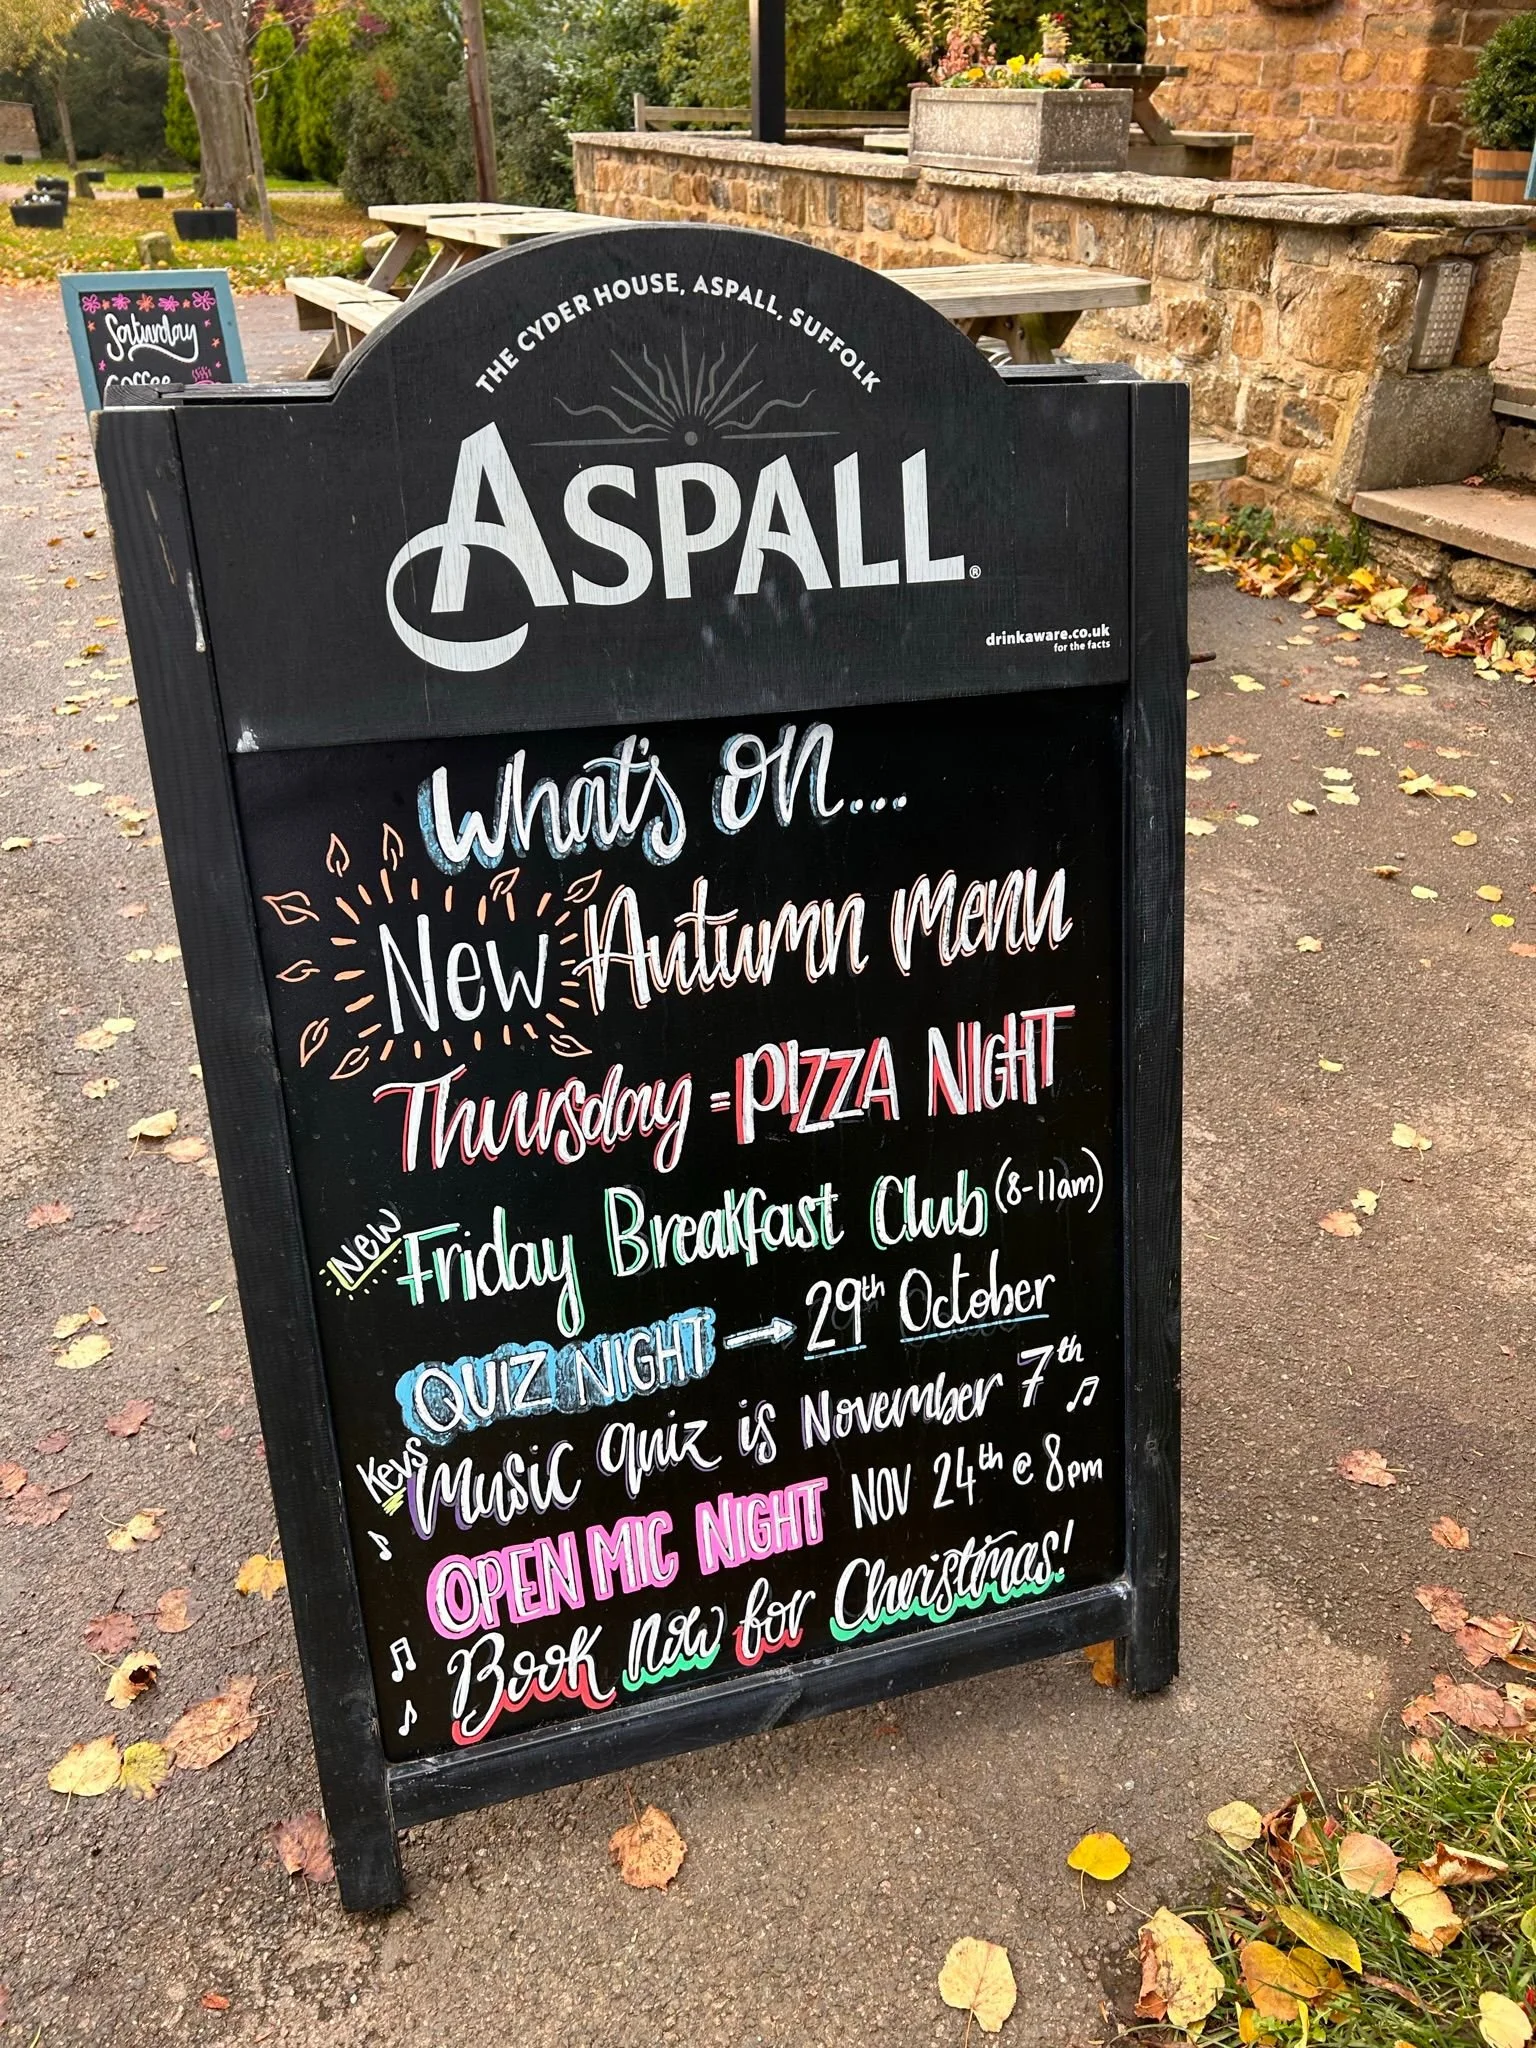 Saturday
coffee
THE CYDER HOUSE, ASPALL, SUFFOLK
ASPALL®
drinkaware.co.uk
for the facts
What's on...
New Autumn menu
Thursday = PIZZA NIGHT
New Friday Breakfast Club (8-11am)
QUIZ NIGHT → 29th October
Kevs Music quiz is November 7th
OPEN MIC NIGHT NOV 24th @ 8pm
Book now for Christmas!